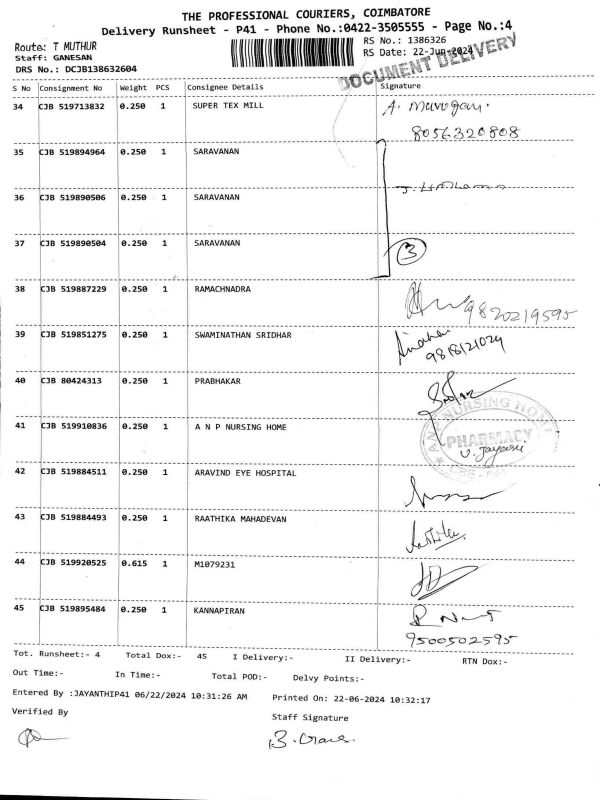 THE PROFESSIONAL COURIERS, COIMBATORE
Delivery Runsheet - P41 - Phone No.:0422-3505555 - Page No.:4
Route: T MUTHUR
RS No.: 1386326
Staff: GANESAN
RS Date: 22-Jun-2024
DRS No.: DCJB138632604
DOCUMENT DELIVERY
S No Consignment No Weight PCS Consignee Details Signature
34 CJB 519713832 0.250 1 SUPER TEX MILL A. Murugan.
8056320808
35 CJB 519894964 0.250 1 SARAVANAN
36 CJB 519890506 0.250 1 SARAVANAN
37 CJB 519890504 0.250 1 SARAVANAN 3
38 CJB 519887229 0.250 1 RAMACHNADRA 9820219595
39 CJB 519851275 0.250 1 SWAMINATHAN SRIDHAR
40 CJB 80424313 0.250 1 PRABHAKAR
41 CJB 519910836 0.250 1 A N P NURSING HOME
ANP NURSING HOME
PHARMACY
42 CJB 519884511 0.250 1 ARAVIND EYE HOSPITAL
43 CJB 519884493 0.250 1 RAATHIKA MAHADEVAN
44 CJB 519920525 0.615 1 M1079231
45 CJB 519895484 0.250 1 KANNAPIRAN
9500502595
Tot. Runsheet:- 4 Total Dox:- 45 I Delivery:- II Delivery:- RTN Dox:-
Out Time:- In Time:- Total POD:- Delvy Points:-
Entered By :JAYANTHIP41 06/22/2024 10:31:26 AM Printed On: 22-06-2024 10:32:17
Verified By
Staff Signature